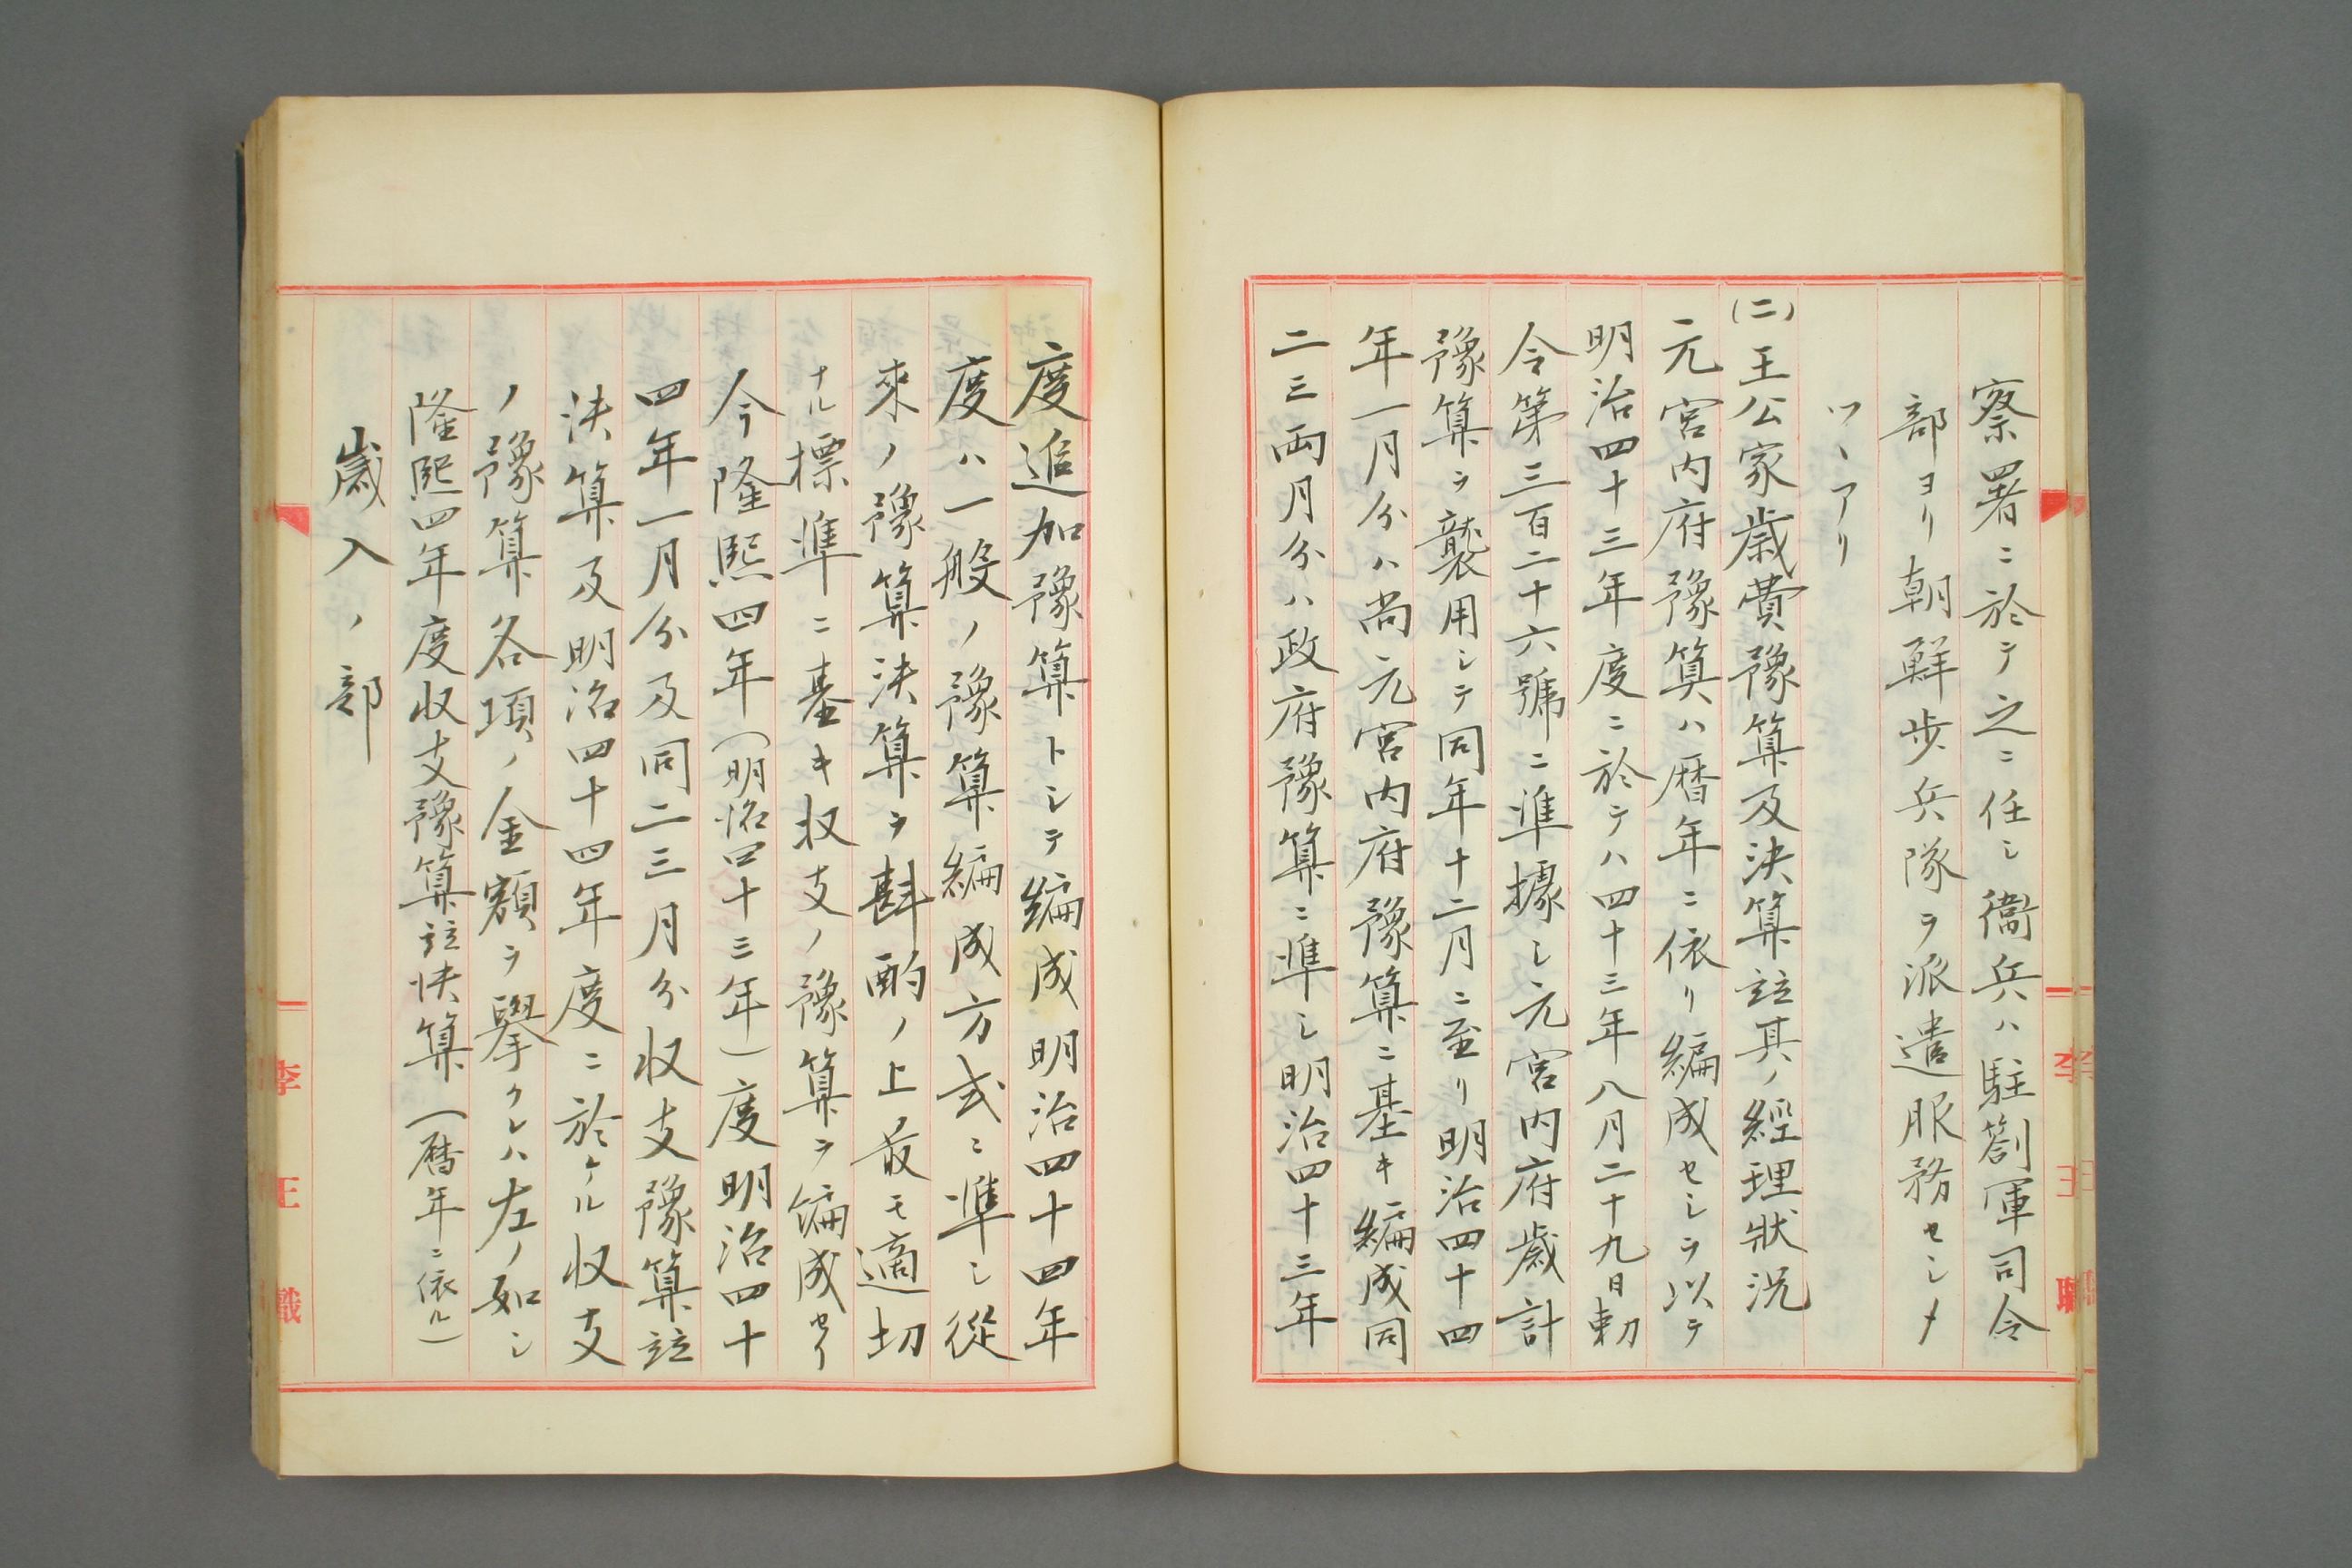 察署ニ於テ之ニ任シ衞兵ハ駐箚軍司令
部ヨリ朝鮮歩兵隊ヲ派遣服務セシメ
ツヽアリ
(二)王公家歳費豫算及決算竝其ノ經理狀況
元宮内府豫算ハ曆年ニ依リ編成セシヲ以テ
明治四十三年度ニ於テハ四十三年八月二十九日勅
令第三百二十六號ニ準據シ元宮内府歳計
豫算ヲ襲用シテ同年十二月ニ至リ明治四十四
年一月分ハ尚元宮内府豫算ニ基キ編成同
二三両月分ハ政府豫算ニ準シ明治四十三年
度追加豫算トシテ編成明治四十四年
度ハ一般ノ豫算編成方式ニ準シ從
來ノ豫算決算ヲ斟酌ノ上最モ適切
ナル標準ニ基キ収支ノ豫算ヲ編成セリ
今隆熙四年(明治四十三年)度明治四十
四年一月分及同二三月分収支豫算竝
決算及明治四十四年度ニ於ケル収支
ノ豫算各項ノ金額ヲ擧クレハ左ノ如シ
隆熙四年度収支豫算竝決算(曆年ニ依ル)
歳入ノ部
李王職